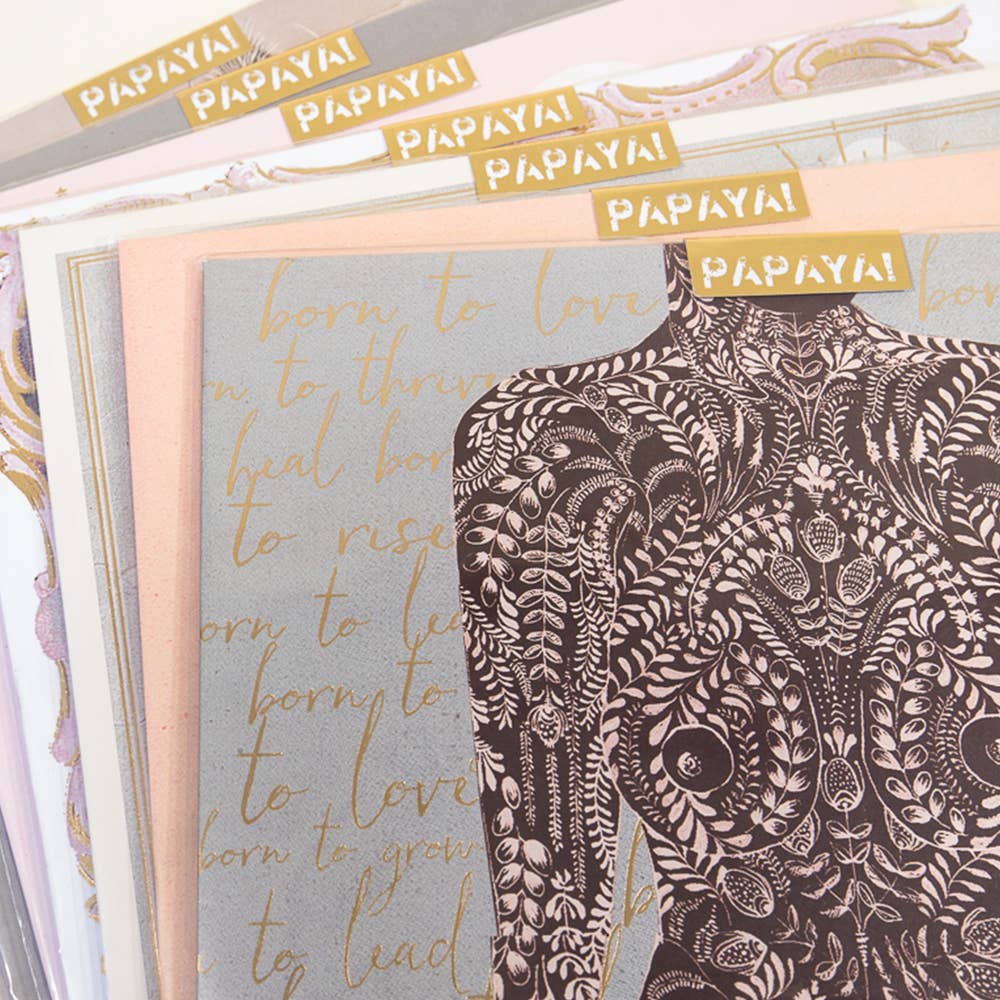 PAPAYA!
PAPAYA!
PAPAYA!
PAPAYA!
PAPAYA!
PAPAYA!
PAPAYA!
born to love
born
to thrive
heal born
to rise
born to
born to
to love
born to grow
to lead